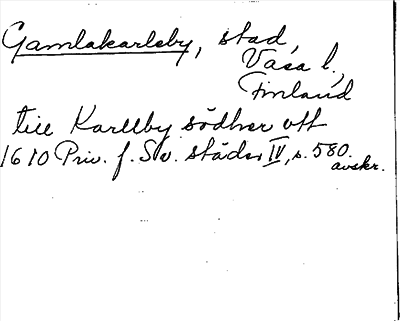 Gamlakarleby, stad,
Vasa l.,
Finland
till Karlleby södher utt
1610 Priv. f. Sv. städer IV, s. 580.
avskr.